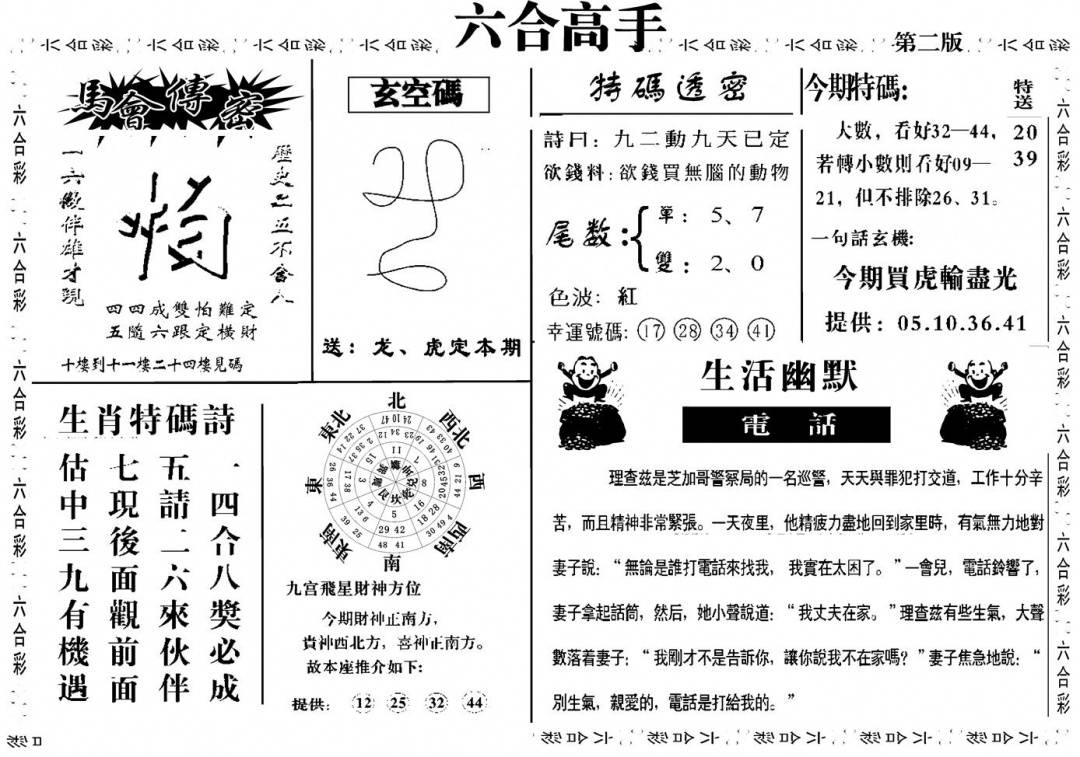 六合高手
第二版
馬會傳密
一六微伴雄才現
歷史二五不會人
四四成雙怕難定
五隨六跟定橫財
十樓到十一樓二十四樓見碼
玄空碼
送：龙、虎定本期
特碼透密
詩曰：九二動九天已定
欲錢料：欲錢買無腦的動物
尾数：
單：5、7
雙：2、0
色波：紅
幸運號碼：17 28 34 41
今期特碼：
特送
20
39
大數，看好32—44，
若轉小數則看好09—
21，但不排除26、31。
一句話玄機：
今期買虎輸盡光
提供：05.10.36.41
生肖特碼詩
一四合八獎必成
五請二六來伙伴
七現後面觀前面
估中三九有機遇
北
西北
西
西南
南
東南
東
東北
九宫飛星財神方位
今期財神正南方，
貴神西北方，喜神正南方。
故本座推介如下：
提供：12 25 32 44
生活幽默
電話
理查兹是芝加哥警察局的一名巡警，天天與罪犯打交道，工作十分辛
苦，而且精神非常緊張。一天夜里，他精疲力盡地回到家里時，有氣無力地對
妻子說：“無論是誰打電話來找我，我實在太困了。”一會兒，電話鈴響了，
妻子拿起話筒，然后，她小聲說道：“我丈夫在家。”理查兹有些生氣，大聲
數落着妻子：“我剛才不是告訴你，讓你說我不在家嗎？”妻子焦急地說：“
別生氣，親愛的，電話是打給我的。”
六合彩